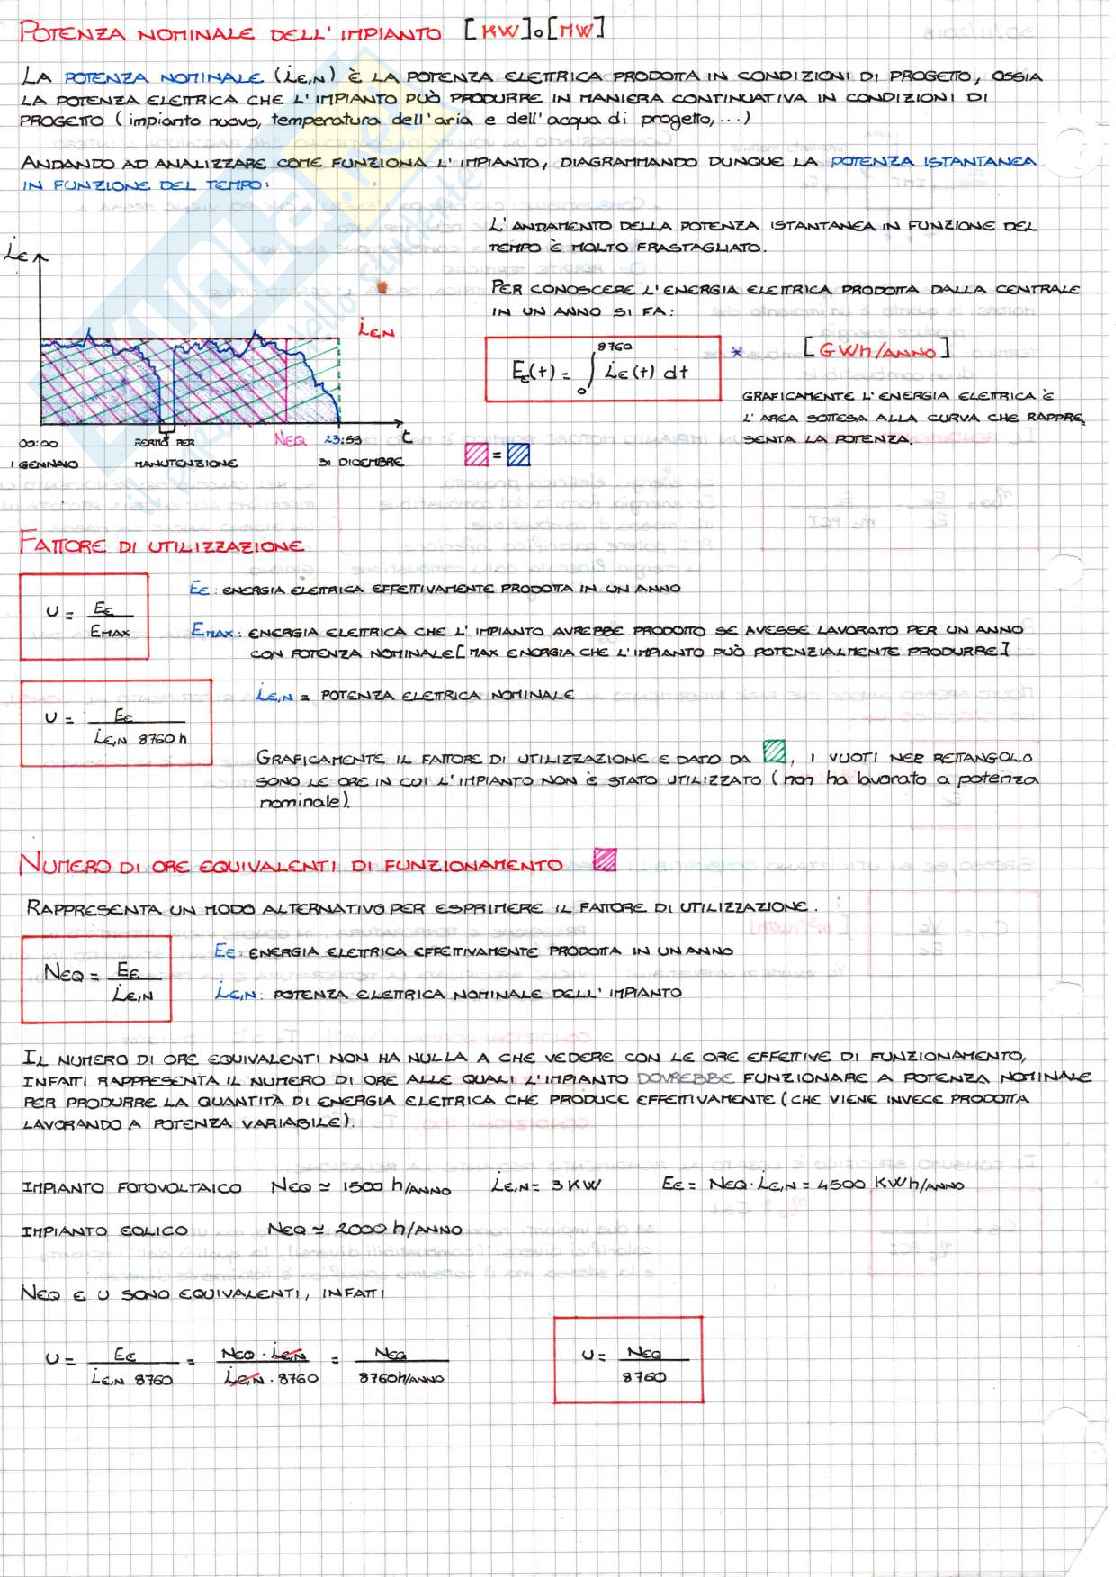 POTENZA NOMINALE DELL' IMPIANTO [KW] o [MW]
LA POTENZA NOMINALE (LE,N) È LA POTENZA ELETTRICA PRODOTTA IN CONDIZIONI DI PROGETTO, OSSIA
LA POTENZA ELETTRICA CHE L'IMPIANTO PUÒ PRODURRE IN MANIERA CONTINUATIVA IN CONDIZIONI DI
PROGETTO (impianto nuovo, temperatura dell'aria e dell'acqua di progetto,...)
ANDANDO AD ANALIZZARE COME FUNZIONA L'IMPIANTO, DIAGRAMMANDO DUNQUE LA POTENZA ISTANTANEA
IN FUNZIONE DEL TEMPO:
L'ANDAMENTO DELLA POTENZA ISTANTANEA IN FUNZIONE DEL
TEMPO È MOLTO FRASTAGLIATO.
PER CONOSCERE L'ENERGIA ELETTRICA PRODOTTA DALLA CENTRALE
IN UN ANNO SI FA:
L̇E
L̇EN
EE(t) = ∫₀⁸⁷⁶⁰ L̇E(t) dt * [GWh/ANNO]
GRAFICAMENTE L'ENERGIA ELETTRICA È
L'AREA SOTTESA ALLA CURVA CHE RAPPRE,
SENTA LA POTENZA.
00:00 FERMO PER NEQ 23:59 t
1 GENNAIO MANUTENZIONE 31 DICEMBRE
=
FATTORE DI UTILIZZAZIONE
U = EE / EMAX
EE: ENERGIA ELETTRICA EFFETTIVAMENTE PRODOTTA IN UN ANNO
EMAX: ENERGIA ELETTRICA CHE L'IMPIANTO AVREBBE PRODOTTO SE AVESSE LAVORATO PER UN ANNO
CON POTENZA NOMINALE [MAX ENERGIA CHE L'IMPIANTO PUÒ POTENZIALMENTE PRODURRE]
U = EE / L̇E,N 8760 h
L̇E,N = POTENZA ELETRICA NOMINALE
GRAFICAMENTE IL FATTORE DI UTILIZZAZIONE E DATO DA , I VUOTI NER RETTANGOLO
SONO LE ORE IN CUI L'IMPIANTO NON È STATO UTILIZZATO (non ha lavorato a potenza
nominale).
NUMERO DI ORE EQUIVALENTI DI FUNZIONAMENTO
RAPPRESENTA UN MODO ALTERNATIVO PER ESPRIMERE IL FATTORE DI UTILIZZAZIONE.
NEQ = EE / L̇E,N
EE: ENERGIA ELETTRICA EFFETTIVAMENTE PRODOTTA IN UN ANNO
L̇E,N: POTENZA ELETTRICA NOMINALE DELL'IMPIANTO
IL NUMERO DI ORE EQUIVALENTI NON HA NULLA A CHE VEDERE CON LE ORE EFFETTIVE DI FUNZIONAMENTO,
INFATTI RAPPRESENTA IL NUMERO DI ORE ALLE QUALI L'IMPIANTO DOVREBBE FUNZIONARE A POTENZA NOMINALE
PER PRODURRE LA QUANTITÀ DI ENERGIA ELETTRICA CHE PRODUCE EFFETTIVAMENTE (CHE VIENE INVECE PRODOTTA
LAVORANDO A POTENZA VARIABILE).
IMPIANTO FOTOVOLTAICO NEQ ≃ 1500 h/ANNO L̇E,N = 3 KW EE = NEQ · L̇E,N = 4500 KWh/ANNO
IMPIANTO EOLICO NEQ ≃ 2000 h/ANNO
NEQ E U SONO EQUIVALENTI, INFATTI
U = EE / L̇E,N 8760 = NEQ · L̇E,N / L̇E,N · 8760 = NEQ / 8760 h/ANNO U = NEQ / 8760